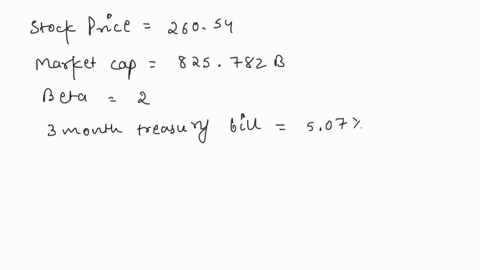 Stock Price = 260.54
Market cap = 825.782 B
Beta = 2
3 month treasury bill = 5.07%